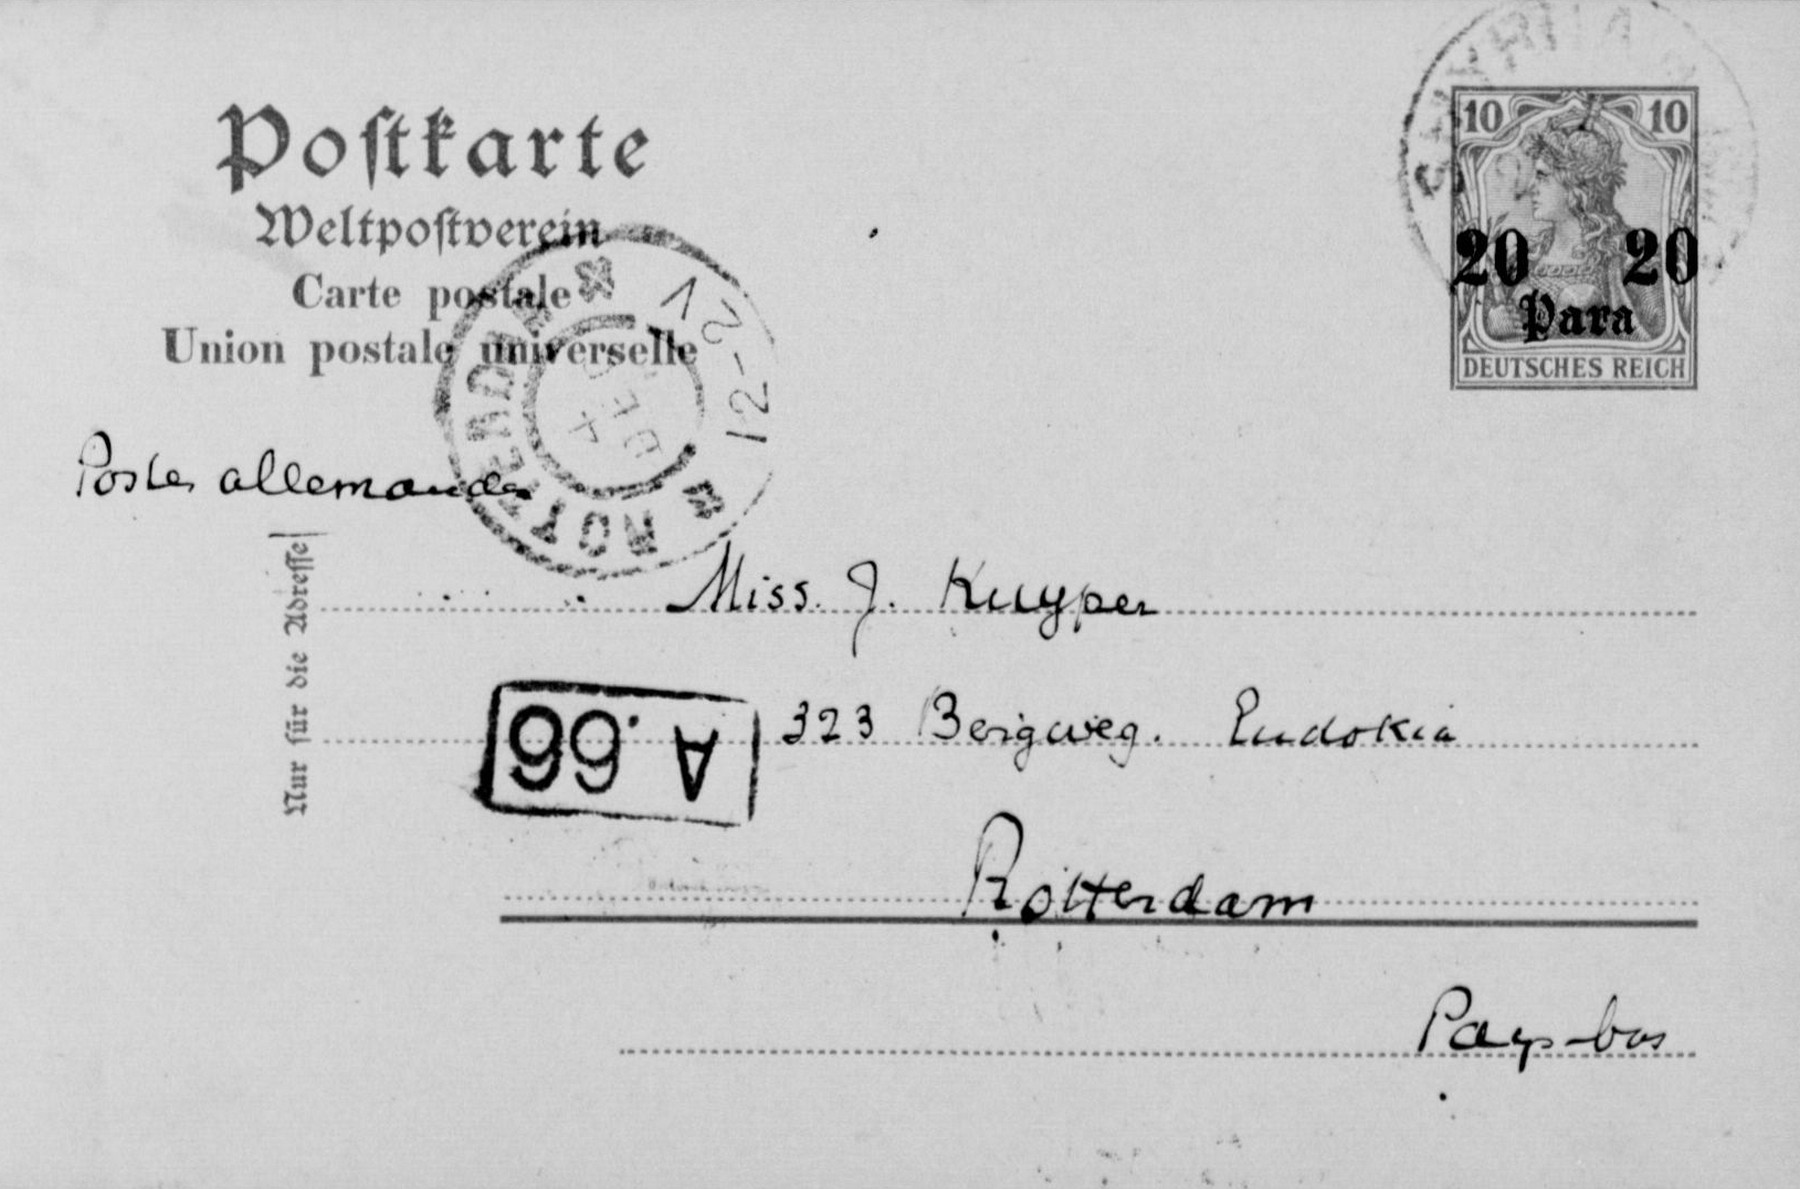 Postkarte
Weltpostverein
Carte postale
Union postale universelle
10 10
20 20
Para
DEUTSCHES REICH
ROTTERDAM
12-2V
4 DE
Postes allemandes
Nur für die Adresse
Miss. J. Kuyper
A .66
323 Bergweg. Eudokia
Rotterdam
Pays-bas